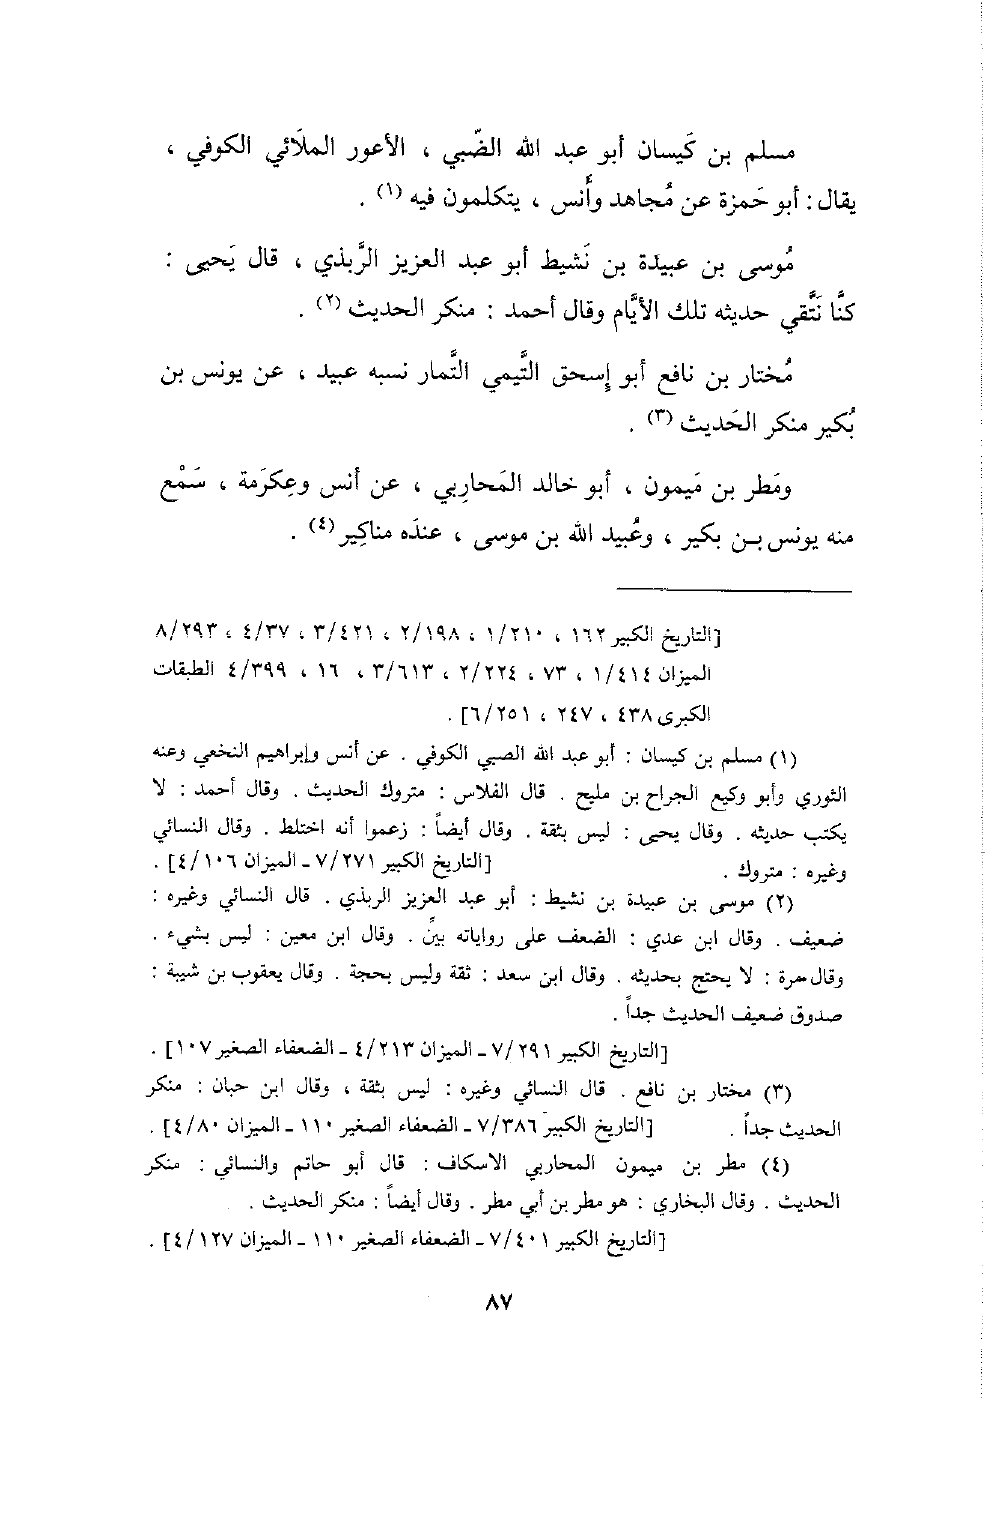 مسلم بن كَيسان أبو عبد الله الضّبي ، الأعور الملَائي الكوفي ،
يقال : أبو حَمزة عن مُجاهد وأَنس ، يتكلمون فيه (١) .
مُوسى بن عبيدة بن نَشيط أبو عبد العزيز الرَّبذي ، قال يَحيى :
كنَّا نَتَّقي حديثه تلك الأيَّام وقال أحمد : منكر الحديث (٢) .
مُختار بن نافع أبو إسحق التَّيمي التَّمار نسبه عبيد ، عن يونس بن
بُكير منكر الحَديث (٣) .
ومَطر بن مَيمون ، أبو خالد المَحارِبي ، عن أنس وعِكرَمة ، سَمْع
منه يونس بـن بكير ، وعُبيد الله بن موسى ، عندَه مناكِير (٤) .
[التاريخ الكبير ١٦٢ ، ١/٢١٠ ، ٢/١٩٨ ، ٣/٤٢١ ، ٤/٣٧ ، ٨/٢٩٣
الميزان ١/٤١٤ ، ٧٣ ، ٢/٢٢٤ ، ٣/٦١٣ ، ١٦ ، ٤/٣٩٩ الطبقات
الكبرى ٤٣٨ ، ٢٤٧ ، ٦/٢٥١] .
(١) مسلم بن كيسان : أبو عبد الله الصبي الكوفي . عن أنس وإبراهيم النخعي وعنه
الثوري وأبو وكيع الجراح بن مليح . قال الفلاس : متروك الحديث . وقال أحمد : لا
يكتب حديثه . وقال يحيى : ليس بثقة . وقال أيضاً : زعموا أنه اختلط . وقال النسائي
وغيره : متروك . [التاريخ الكبير ٧/٢٧١ ـ الميزان ٤/١٠٦] .
(٢) موسى بن عبيدة بن نشيط : أبو عبد العزيز الربذي . قال النسائي وغيره :
ضعيف . وقال ابن عدي : الضعف على رواياته بيِّن . وقال ابن معين : ليس بشيء .
وقال مرة : لا يحتج بحديثه . وقال ابن سعد : ثقة وليس بحجة . وقال يعقوب بن شيبة :
صدوق ضعيف الحديث جداً .
[التاريخ الكبير ٧/٢٩١ ـ الميزان ٤/٢١٣ ـ الضعفاء الصغير ١٠٧] .
(٣) مختار بن نافع . قال النسائي وغيره : ليس بثقة ، وقال ابن حبان : منكر
الحديث جداً . [التاريخ الكبير ٧/٣٨٦ ـ الضعفاء الصغير ١١٠ ـ الميزان ٤/٨٠] .
(٤) مطر بن ميمون المحاربي الاسكاف : قال أبو حاتم والنسائي : منكر
الحديث . وقال البخاري : هو مطر بن أبي مطر . وقال أيضاً : منكر الحديث .
[التاريخ الكبير ٧/٤٠١ ـ الضعفاء الصغير ١١٠ ـ الميزان ٤/١٢٧] .
٨٧